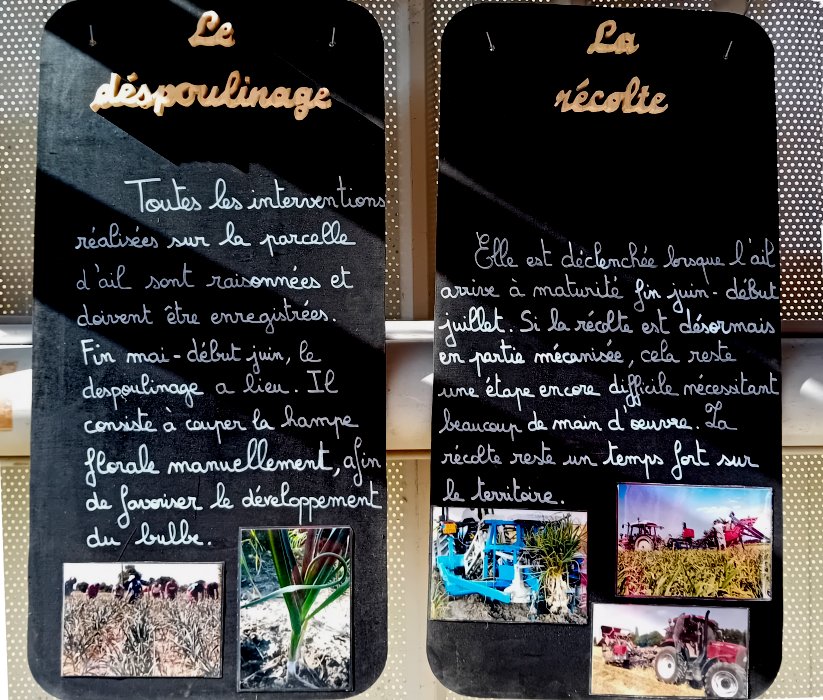 Le
déspoulinage
Toutes les interventions
réalisées sur la parcelle
d'ail sont raisonnées et
doivent être enregistrées.
Fin mai-début juin, le
despoulinage a lieu. Il
consiste à couper la hampe
florale manuellement, afin
de favoriser le développement
du bulbe.
La
récolte
Elle est déclenchée lorsque l'ail
arrive à maturité fin juin-début
juillet. Si la récolte est désormais
en partie mécanisée, cela reste
une étape encore difficile nécessitant
beaucoup de main d'oeuvre. La
récolte reste un temps fort sur
le territoire.